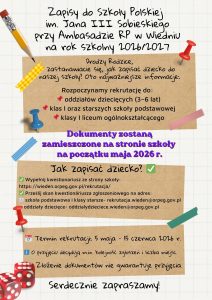 Zapisy do Szkoły Polskiej
im. Jana III Sobieskiego
przy Ambasadzie RP w Wiedniu
na rok szkolny 2026/2027
Drodzy Rodzice,
zastanawiacie się, jak zapisać dziecko do
naszej szkoły? Oto najważniejsze informacje.
Rozpoczynamy rekrutację do:
oddziałów dziecięcych (3-6 lat)
klas I oraz starszych szkoły podstawowej
klasy I liceum ogólnokształcącego
Dokumenty zostaną
zamieszczone na stronie szkoły
na początku maja 2026 r.
Jak zapisać dziecko?
Wypełnij kwestionariusz ze strony szkoły:
https://wieden.orpeg.gov.pl/rekrutacja/
Prześlij skan kwestionariusza zgłoszeniowego na adres:
szkoła podstawowa i klasy starsze - rekrutacja.wieden@orpeg.gov.pl
oddziały dziecięce- oddzialydzieciece.wieden@orpeg.gov.pl
Termin rekrutacji: 5 maja - 15 czerwca 2026 r.
O przyjęciu decydują m.in. kolejność zgłoszeń i liczba miejsc.
Złożenie dokumentów nie gwarantuje przyjęcia.
Serdecznie zapraszamy!